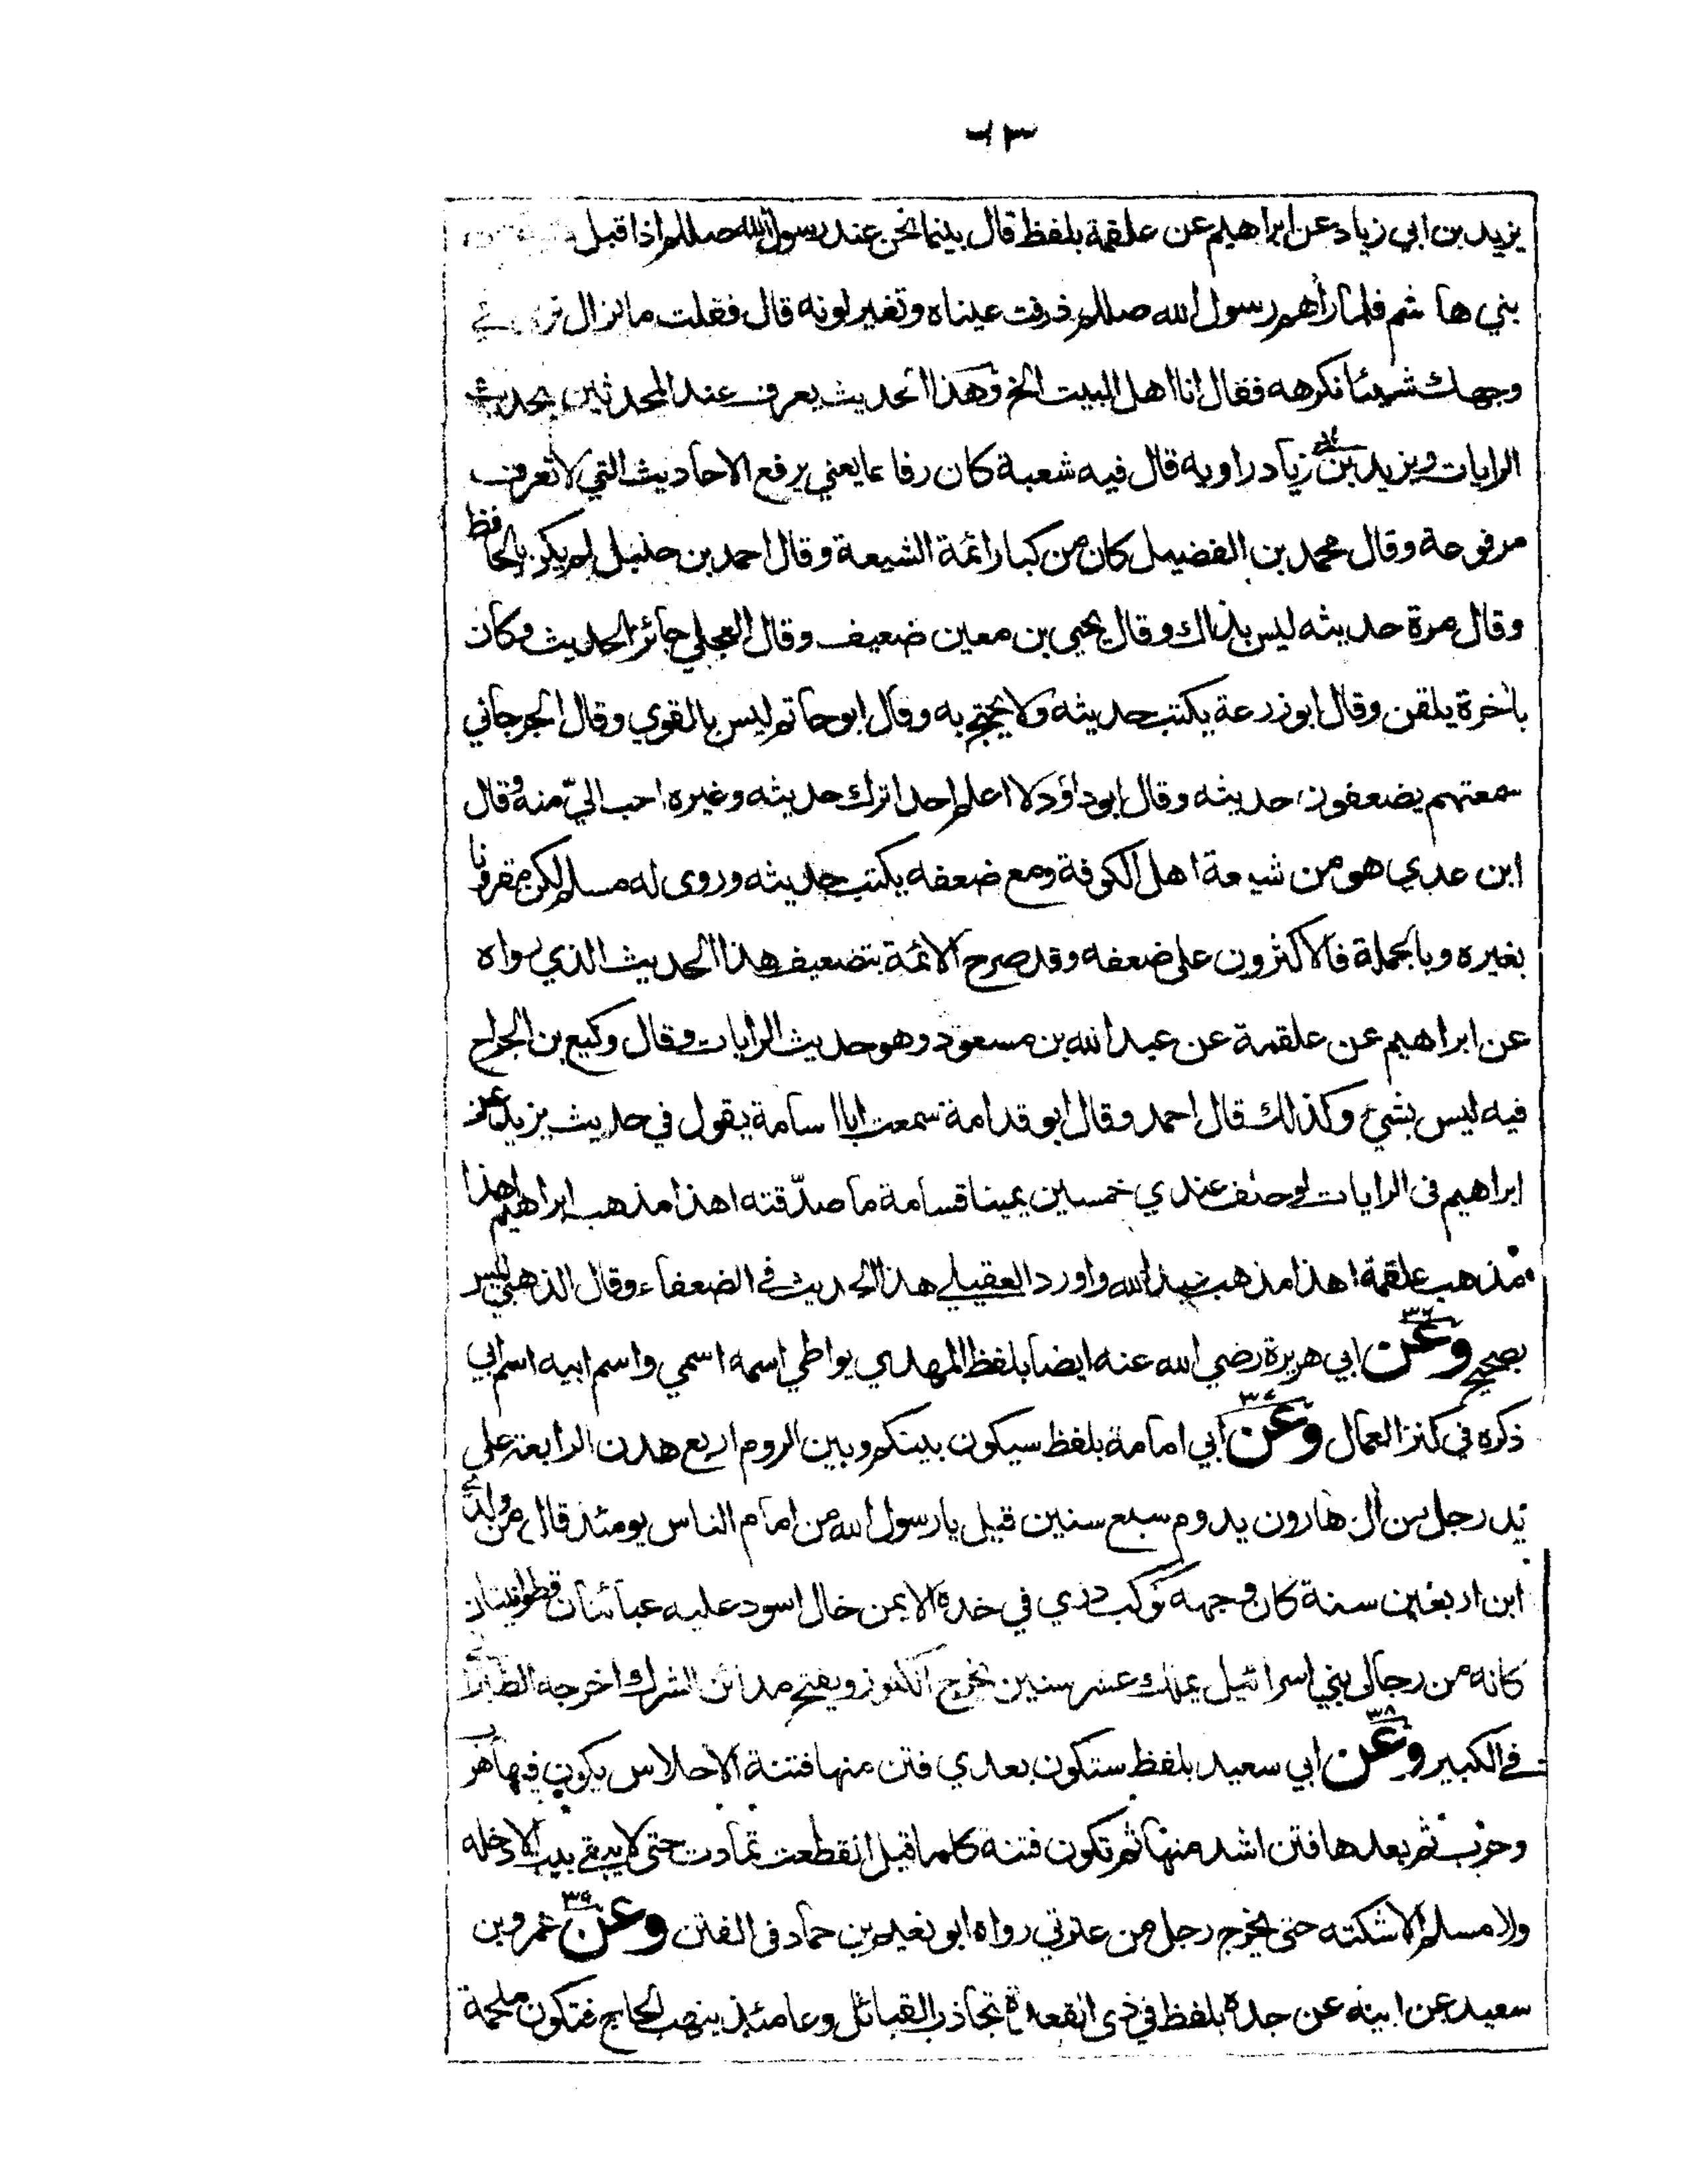 ٦٣
يزيد بن ابي زياد عن ابراهيم عن علقمة بلفظ قال بينما نحن عند رسول الله صللم اذا قبل
بني هاشم فلما رأهم رسول الله صللم ذرفت عيناه وتغير لونه قال فقلت ما نزال نرى في
وجهك شيئا نكرهه فقال انا اهل البيت الخ وهذا الحديث يعرف عند المحدثين بحديث
الرايات ويزيد بن ابي زياد راويه قال فيه شعبة كان رفاعا يعني يرفع الاحاديث التي لا تعرف
مرفوعة وقال محمد بن الفضيل كان من كبار ائمة الشيعة وقال احمد بن حنبل لم يكن بالحافظ
وقال مرة حديثه ليس بذاك وقال يحيى بن معين ضعيف وقال العجلي جائز الحديث وكان
بأخرة يلقن وقال ابو زرعة يكتب حديثه ولا يحتج به وقال ابو حاتم ليس بالقوي وقال الجرجاني
سمعتهم يضعفون حديثه وقال ابو داؤد لا اعلم احدا ترك حديثه وغيره احب اليّ منه وقال
ابن عدي هو من شيعة اهل الكوفة ومع ضعفه يكتب حديثه وروى له مسلم لكن مقرونا
بغيره وبالجملة فالاكثرون على ضعفه وقد صرح الائمة بتضعيف هذا الحديث الذي رواه
عن ابراهيم عن علقمة عن عبد الله بن مسعود وهو حديث الرايات وقال وكيع بن الجراح
فيه ليس بشئ وكذلك قال احمد وقال ابو قدامة سمعت ابا اسامة يقول في حديث يزيد عن
ابراهيم فى الرايات لو حلف عندي خمسين يمينا قسامة ما صدّقته اهذا مذهب ابراهيم اهذا
مذهب علقمة اهذا مذهب عبد الله واورد العقيلے هذا الحديث في الضعفاء وقال الذهبي ليس
بصحيح وعن ابي هريرة رضي الله عنه ايضا بلفظ المهدي يواطي اسمه اسمي واسم ابيه اسم ابي
ذكره في كنز العمال وعن ابي امامة بلفظ سيكون بينكم وبين الروم اربع هدن الرابعة على
يد رجل من أل هارون يدوم سبع سنين قيل يا رسول الله من امام الناس يومئذ قال من ولدي
ابن اربعين سنة كان وجهه كوكب دري في خده الايمن خال اسود عليه عبائتان قطوانيتان
كانه من رجال بني اسرائيل يملك عشر سنين يخرج الكنوز ويفتح مدائن الشرك اخرجه الطبراني
في الكبير وعن ٣٨ ابي سعيد بلفظ ستكون بعدي فتن منها فتنة الاحلاس يكون فيها هرب
وحرب ثم بعدها فتن اشد منها ثم تكون فتنة كلما قيل انقطعت تمادت حتى لا يبقى بيت الا دخله
ولا مسلم الا شكته حتى يخرج رجل من عترتي رواه ابو نعيم بن حماد فى الفتن وعن ٣٩ عمرو بن
سعيد عن ابيه عن جده بلفظ في ذى القعدة تجاذب القبائل وعامئذ ينهب الحاج فتكون ملحمة